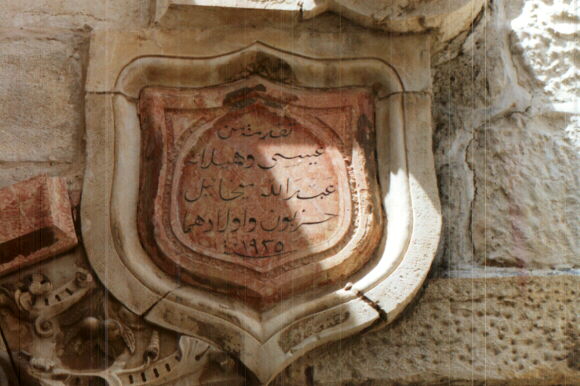 تقدمة من
عيسى وهيلانة
عبد الله ميخائيل
حزبون واولادهما
١٩٢٥